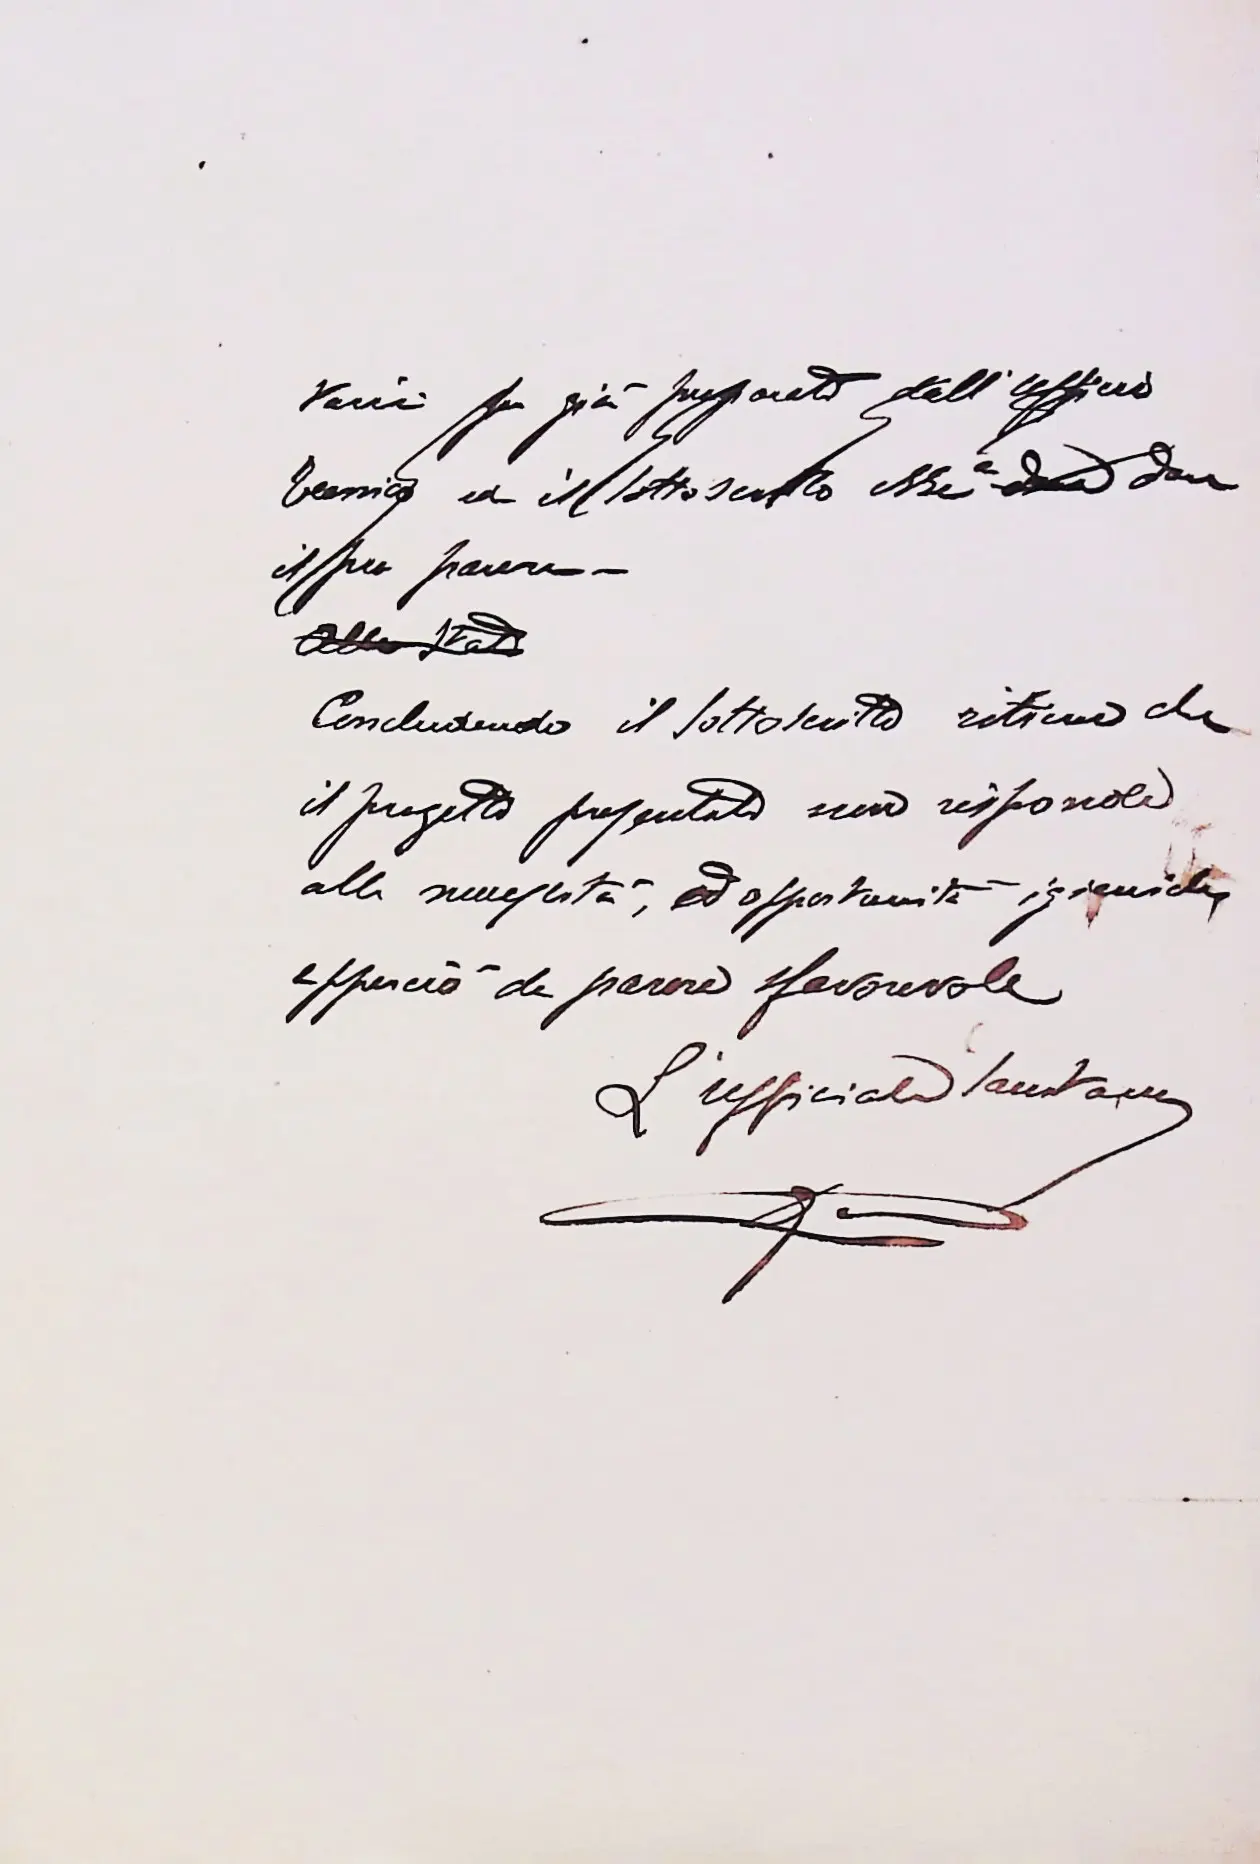 varii fu già preparato dall'Ufficio
Tecnico ed il sottoscritto ebbe a dare
il suo parere —
Allo Stato
Concludendo il sottoscritto ritiene che
il progetto presentato non risponde
alle necessità, ed opportunità igieniche
e perciò dà parere sfavorevole
L'ufficiale Sanitario